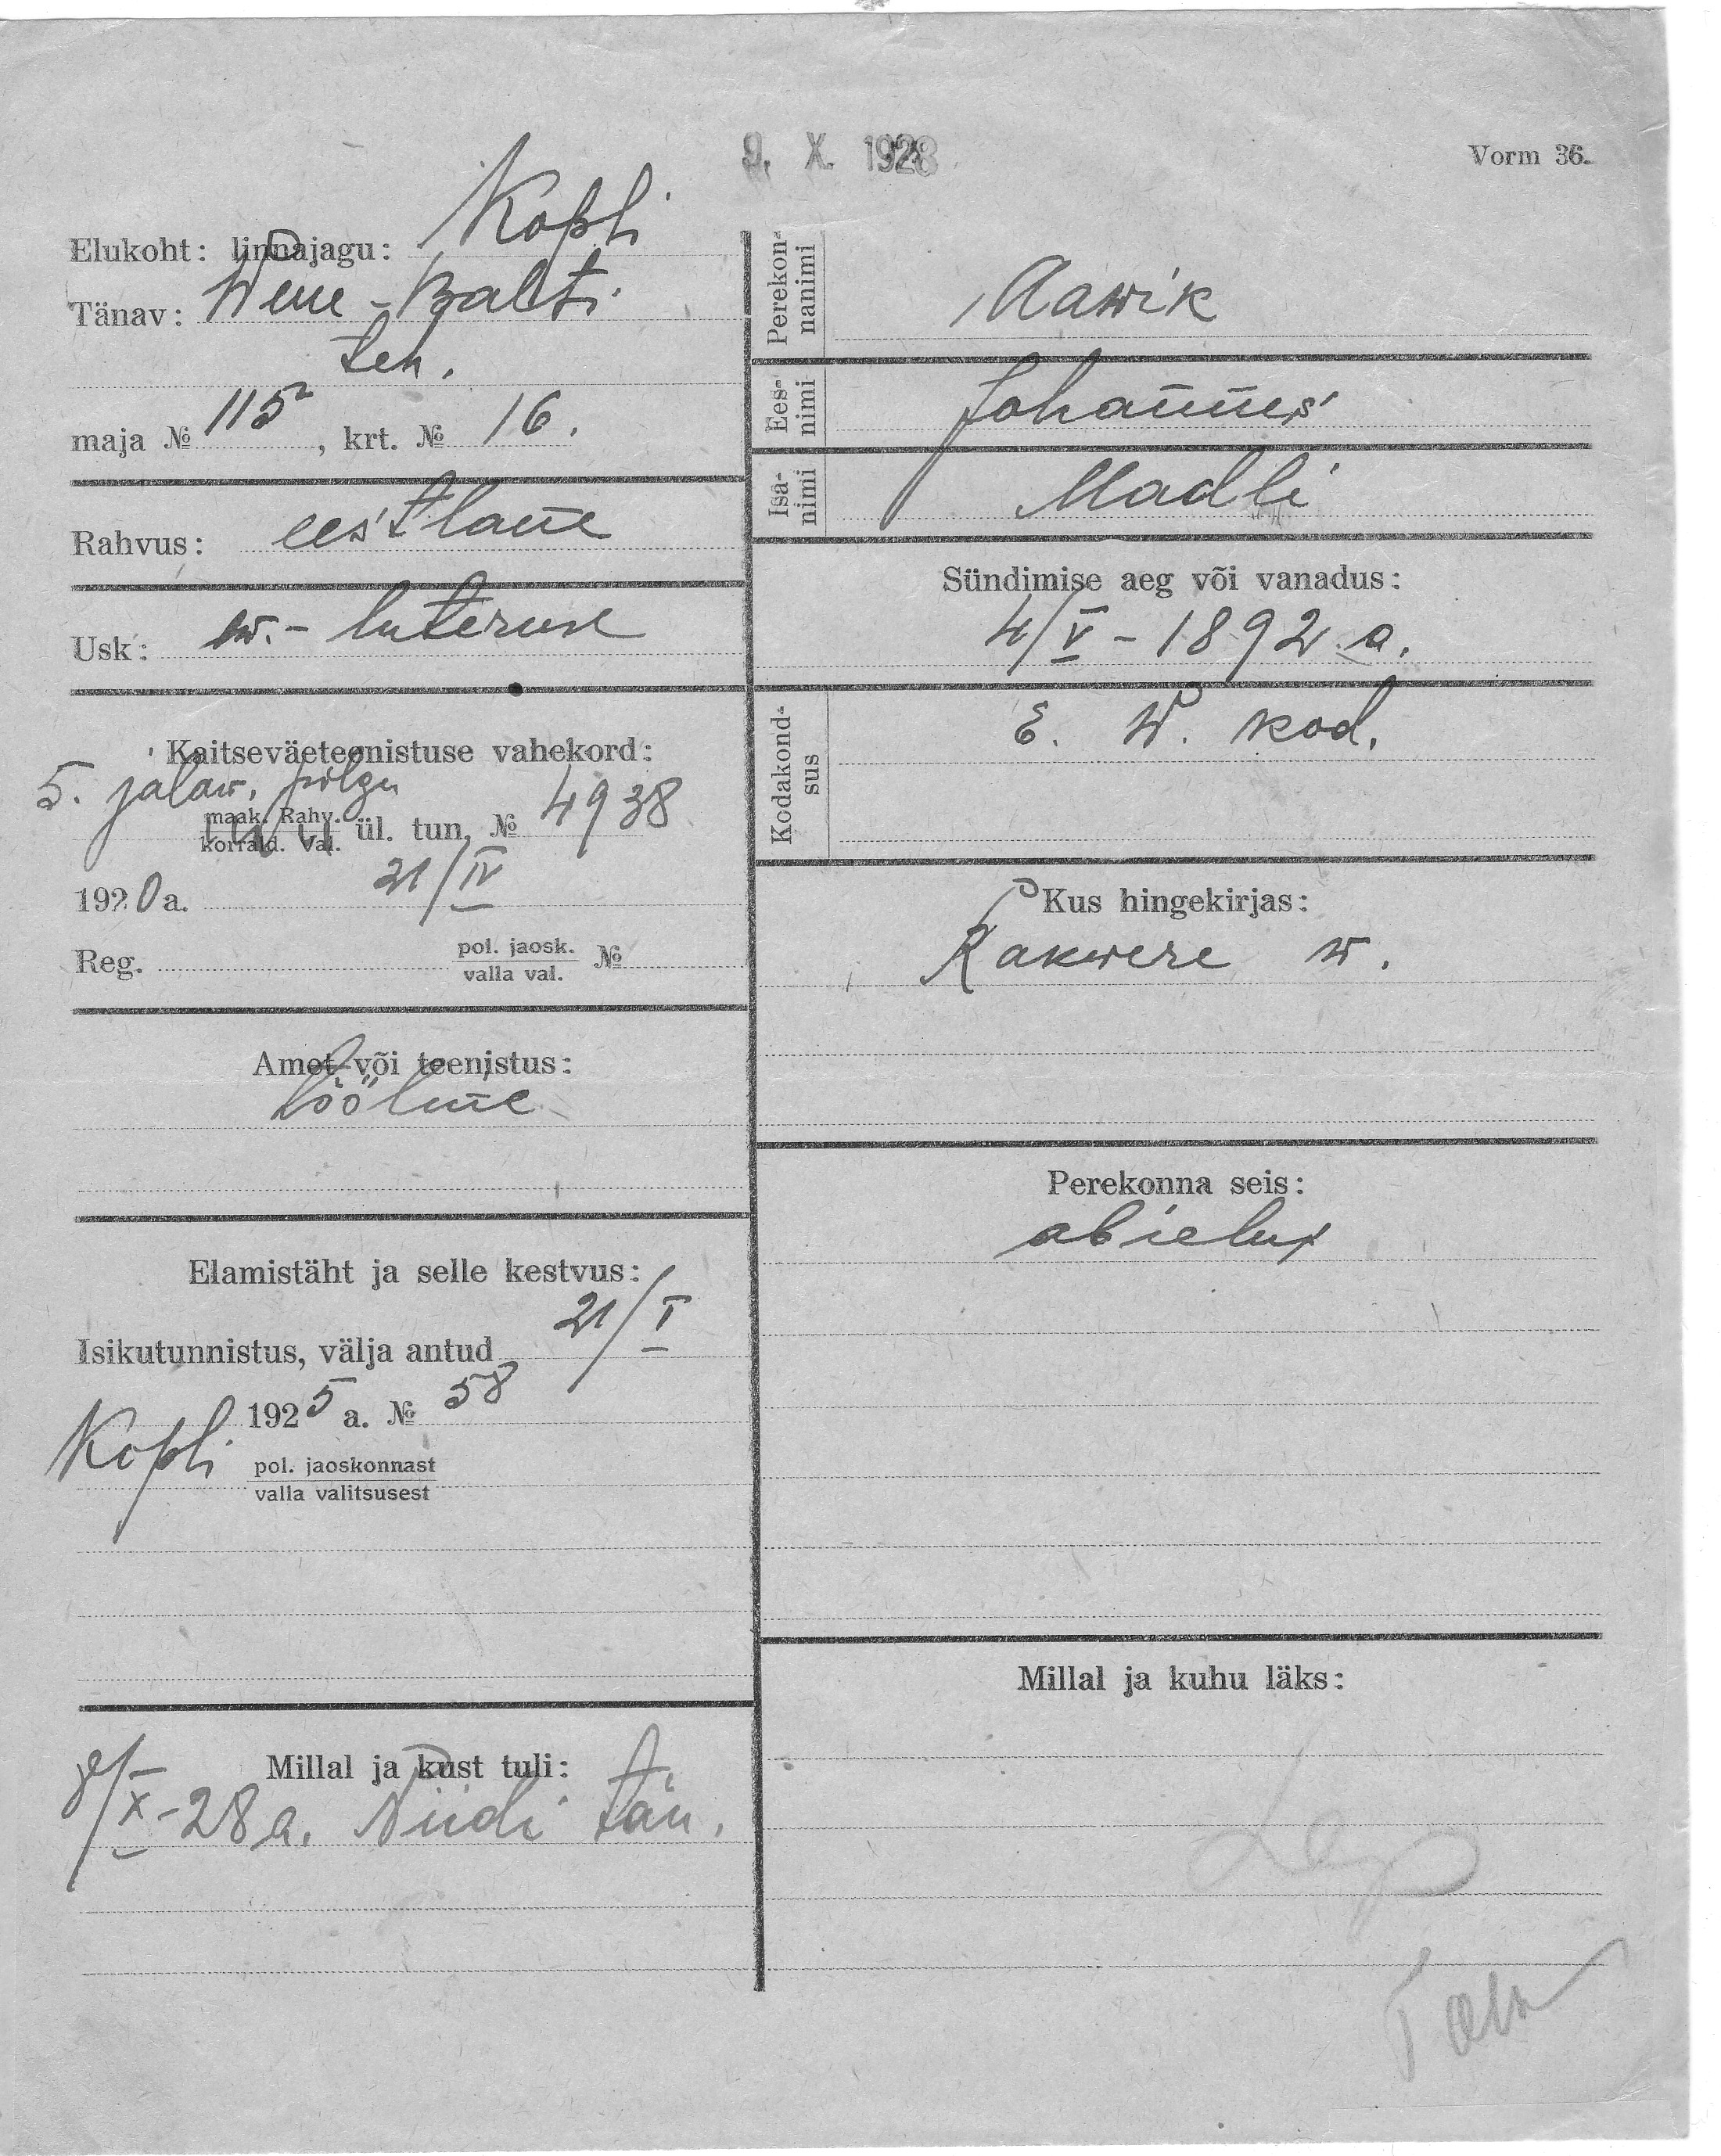 9. X. 1928
Vorm 36.
Elukoht: linnajagu: Kopli
Tänav: Wene-Balti
teh.
maja № 115, krt. № 16.
Rahvus: eestlane
Usk: ew.-luteruse
Kaitseväeteenistuse vahekord:
5. jalaw. polgu
maak. Rahv.
korrald. Val.
ül. tun. № 4938
1920 a. 21/IV
Reg. pol. jaosk. №
valla val.
Amet või teenistus:
tööline
Elamistäht ja selle kestvus:
Isikutunnistus, välja antud 21/I
1925 a. № 58
Kopli pol. jaoskonnast
valla valitsusest
Millal ja kust tuli:
8/X-28 a. Niidi tän.
Perekonnanimi
Aawik
Eesnimi
Johannes
Isanimi
Madli
Sündimise aeg või vanadus:
4/V-1892 a.
Kodakondsus
E. W. kod.
Kus hingekirjas:
Rakwere w.
Perekonna seis:
abielus
Millal ja kuhu läks: